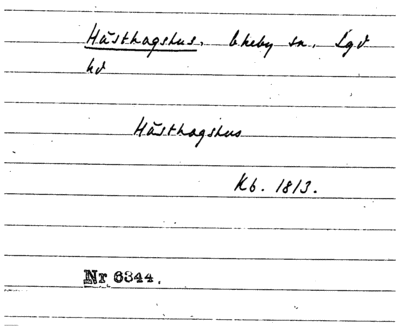 Hästhagshus. Ekeby sn, Lgd
hd
Hästhagshus
Kb. 1813.
Nr 6344.